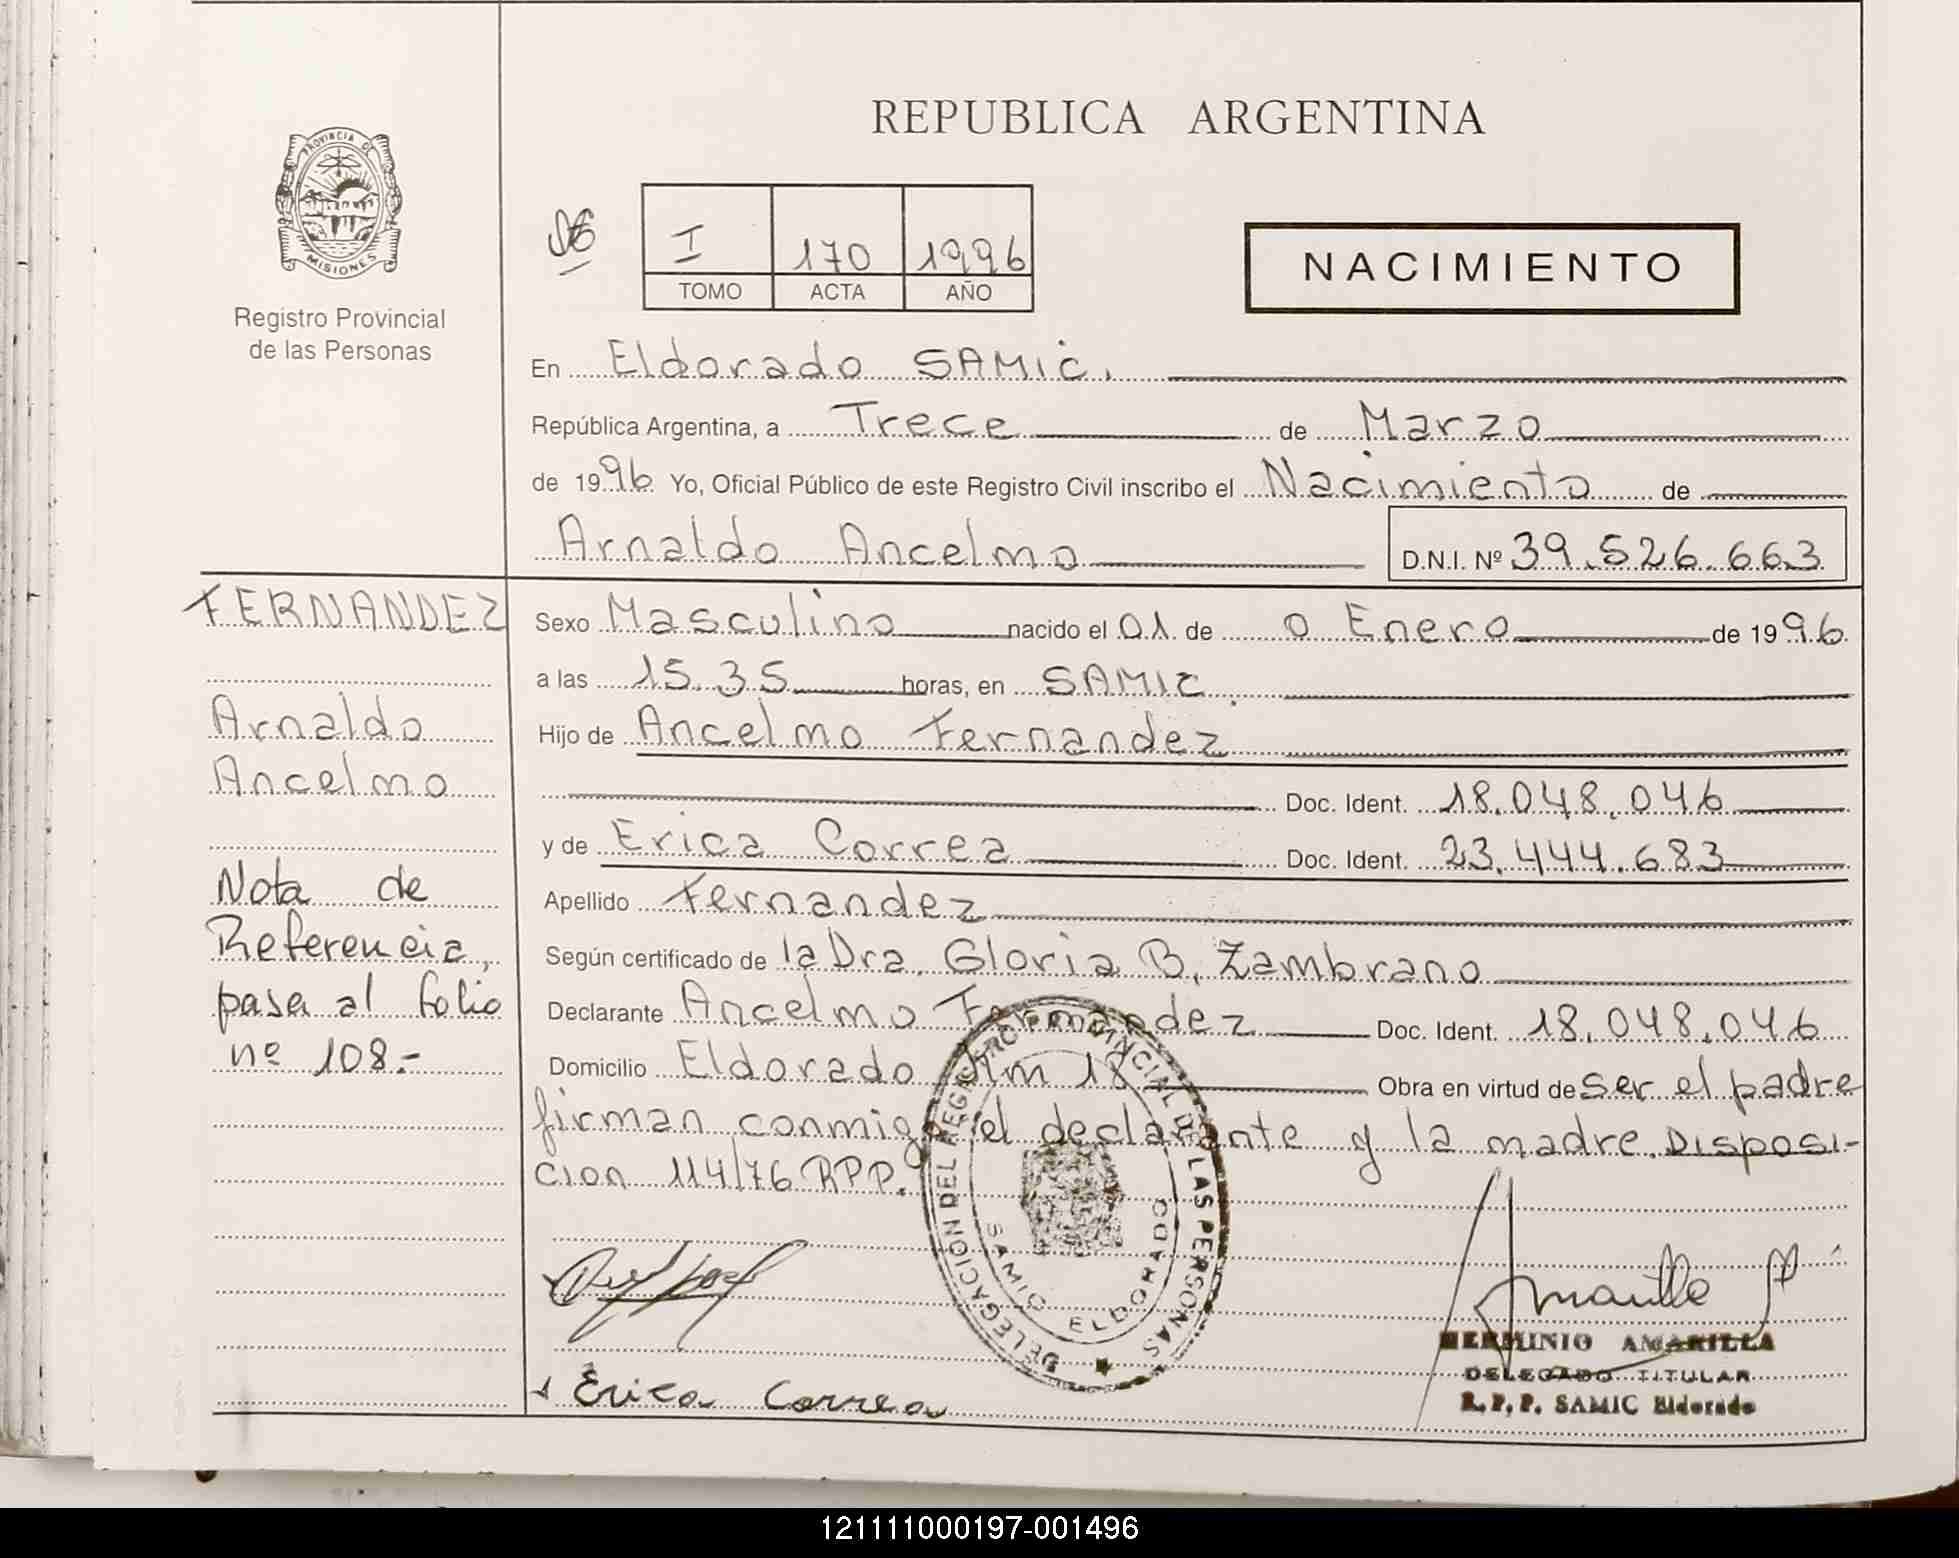 REPUBLICA ARGENTINA
PROVINCIA DE
MISIONES
Registro Provincial
de las Personas
I 170 1996
TOMO ACTA AÑO
NACIMIENTO
En Eldorado SAMIC.
República Argentina, a Trece de Marzo
de 1996 Yo, Oficial Público de este Registro Civil inscribo el Nacimiento de
Arnaldo Ancelmo D.N.I. Nº 39.526.663
FERNANDEZ
Arnaldo
Ancelmo
Nota de
Referencia,
pasa al folio
nº 108.-
Sexo Masculino nacido el 01 de o Enero de 1996
a las 15.35 horas, en SAMIC.
Hijo de Ancelmo Fernandez
Doc. Ident. 18.048.046
y de Erica Correa Doc. Ident. 23.444.683
Apellido Fernandez
Según certificado de la Dra. Gloria B. Zambrano
Declarante Ancelmo Fernandez Doc. Ident. 18.048.046
Domicilio Eldorado Km 18 Obra en virtud de ser el padre
firman conmigo el declarante y la madre. Disposi-
cion 114/76 RPP.
DELEGACION DEL REGISTRO PROVINCIAL DE LAS PERSONAS
SAMIC ELDORADO
Erica Correa
Amarilla
HERMINIO AMARILLA
DELEGADO TITULAR
R.P.P. SAMIC Eldorado
121111000197-001496